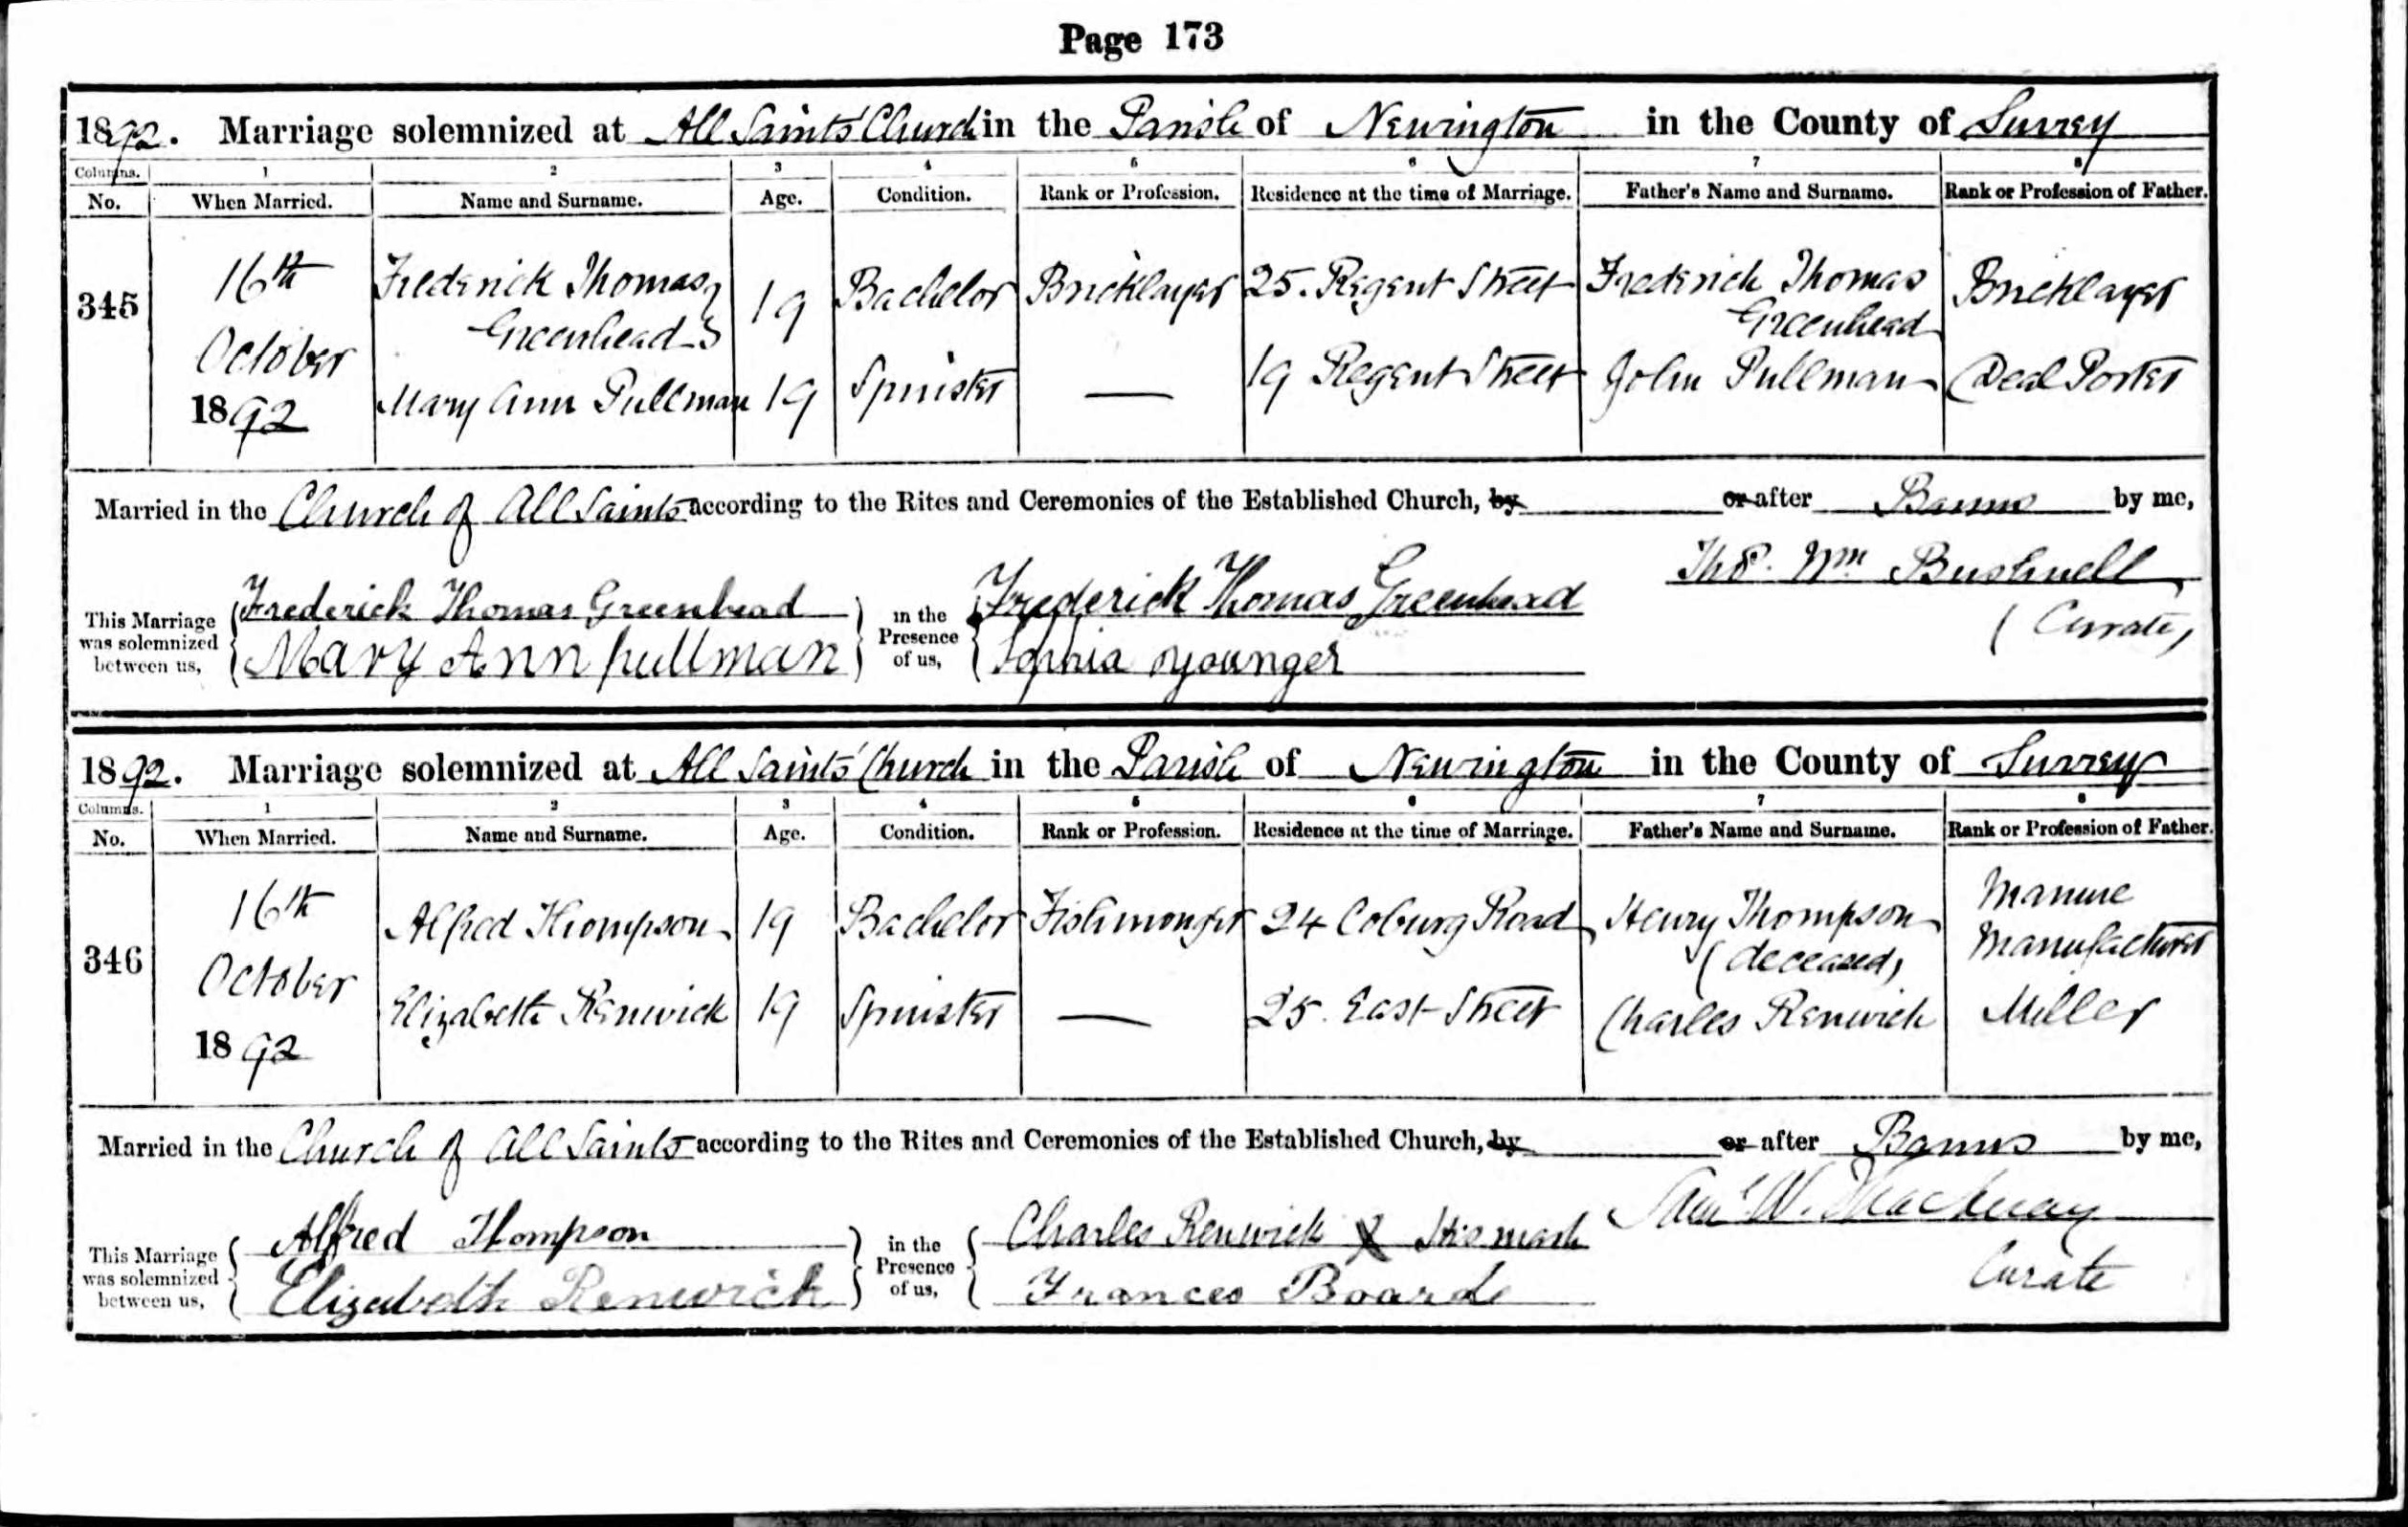 Page 173
1892. Marriage solemnized at All Saints' Church in the Parish of Newington in the County of Surrey
Columns. 1 2 3 4 5 6 7 8
No. When Married. Name and Surname. Age. Condition. Rank or Profession. Residence at the time of Marriage. Father's Name and Surname. Rank or Profession of Father.
345 16th October 1892 Frederick Thomas Greenhead 19 Bachelor Bricklayer 25. Regent Street Frederick Thomas Greenhead Bricklayer
Mary Ann Pullman 19 Spinster — 19 Regent Street John Pullman Deal Porter
Married in the Church of All Saints according to the Rites and Ceremonies of the Established Church, by or after Banns by me,
This Marriage was solemnized between us, Frederick Thomas Greenhead in the Presence of us, Frederick Thomas Greenhead Thos. Wm Bushnell
Mary Ann pullman Sophia Younger (Curate)
1892. Marriage solemnized at All Saints' Church in the Parish of Newington in the County of Surrey
Columns. 1 2 3 4 5 6 7 8
No. When Married. Name and Surname. Age. Condition. Rank or Profession. Residence at the time of Marriage. Father's Name and Surname. Rank or Profession of Father.
346 16th October 1892 Alfred Thompson 19 Bachelor Fishmonger 24 Coburg Road Henry Thompson (deceased) Manure Manufacturer
Elizabeth Renwick 19 Spinster — 25. East Street Charles Renwick Miller
Married in the Church of All Saints according to the Rites and Ceremonies of the Established Church, by or after Banns by me,
This Marriage was solemnized between us, Alfred Thompson in the Presence of us, Charles Renwick X His mark
Elizabeth Renwick Frances Board Curate